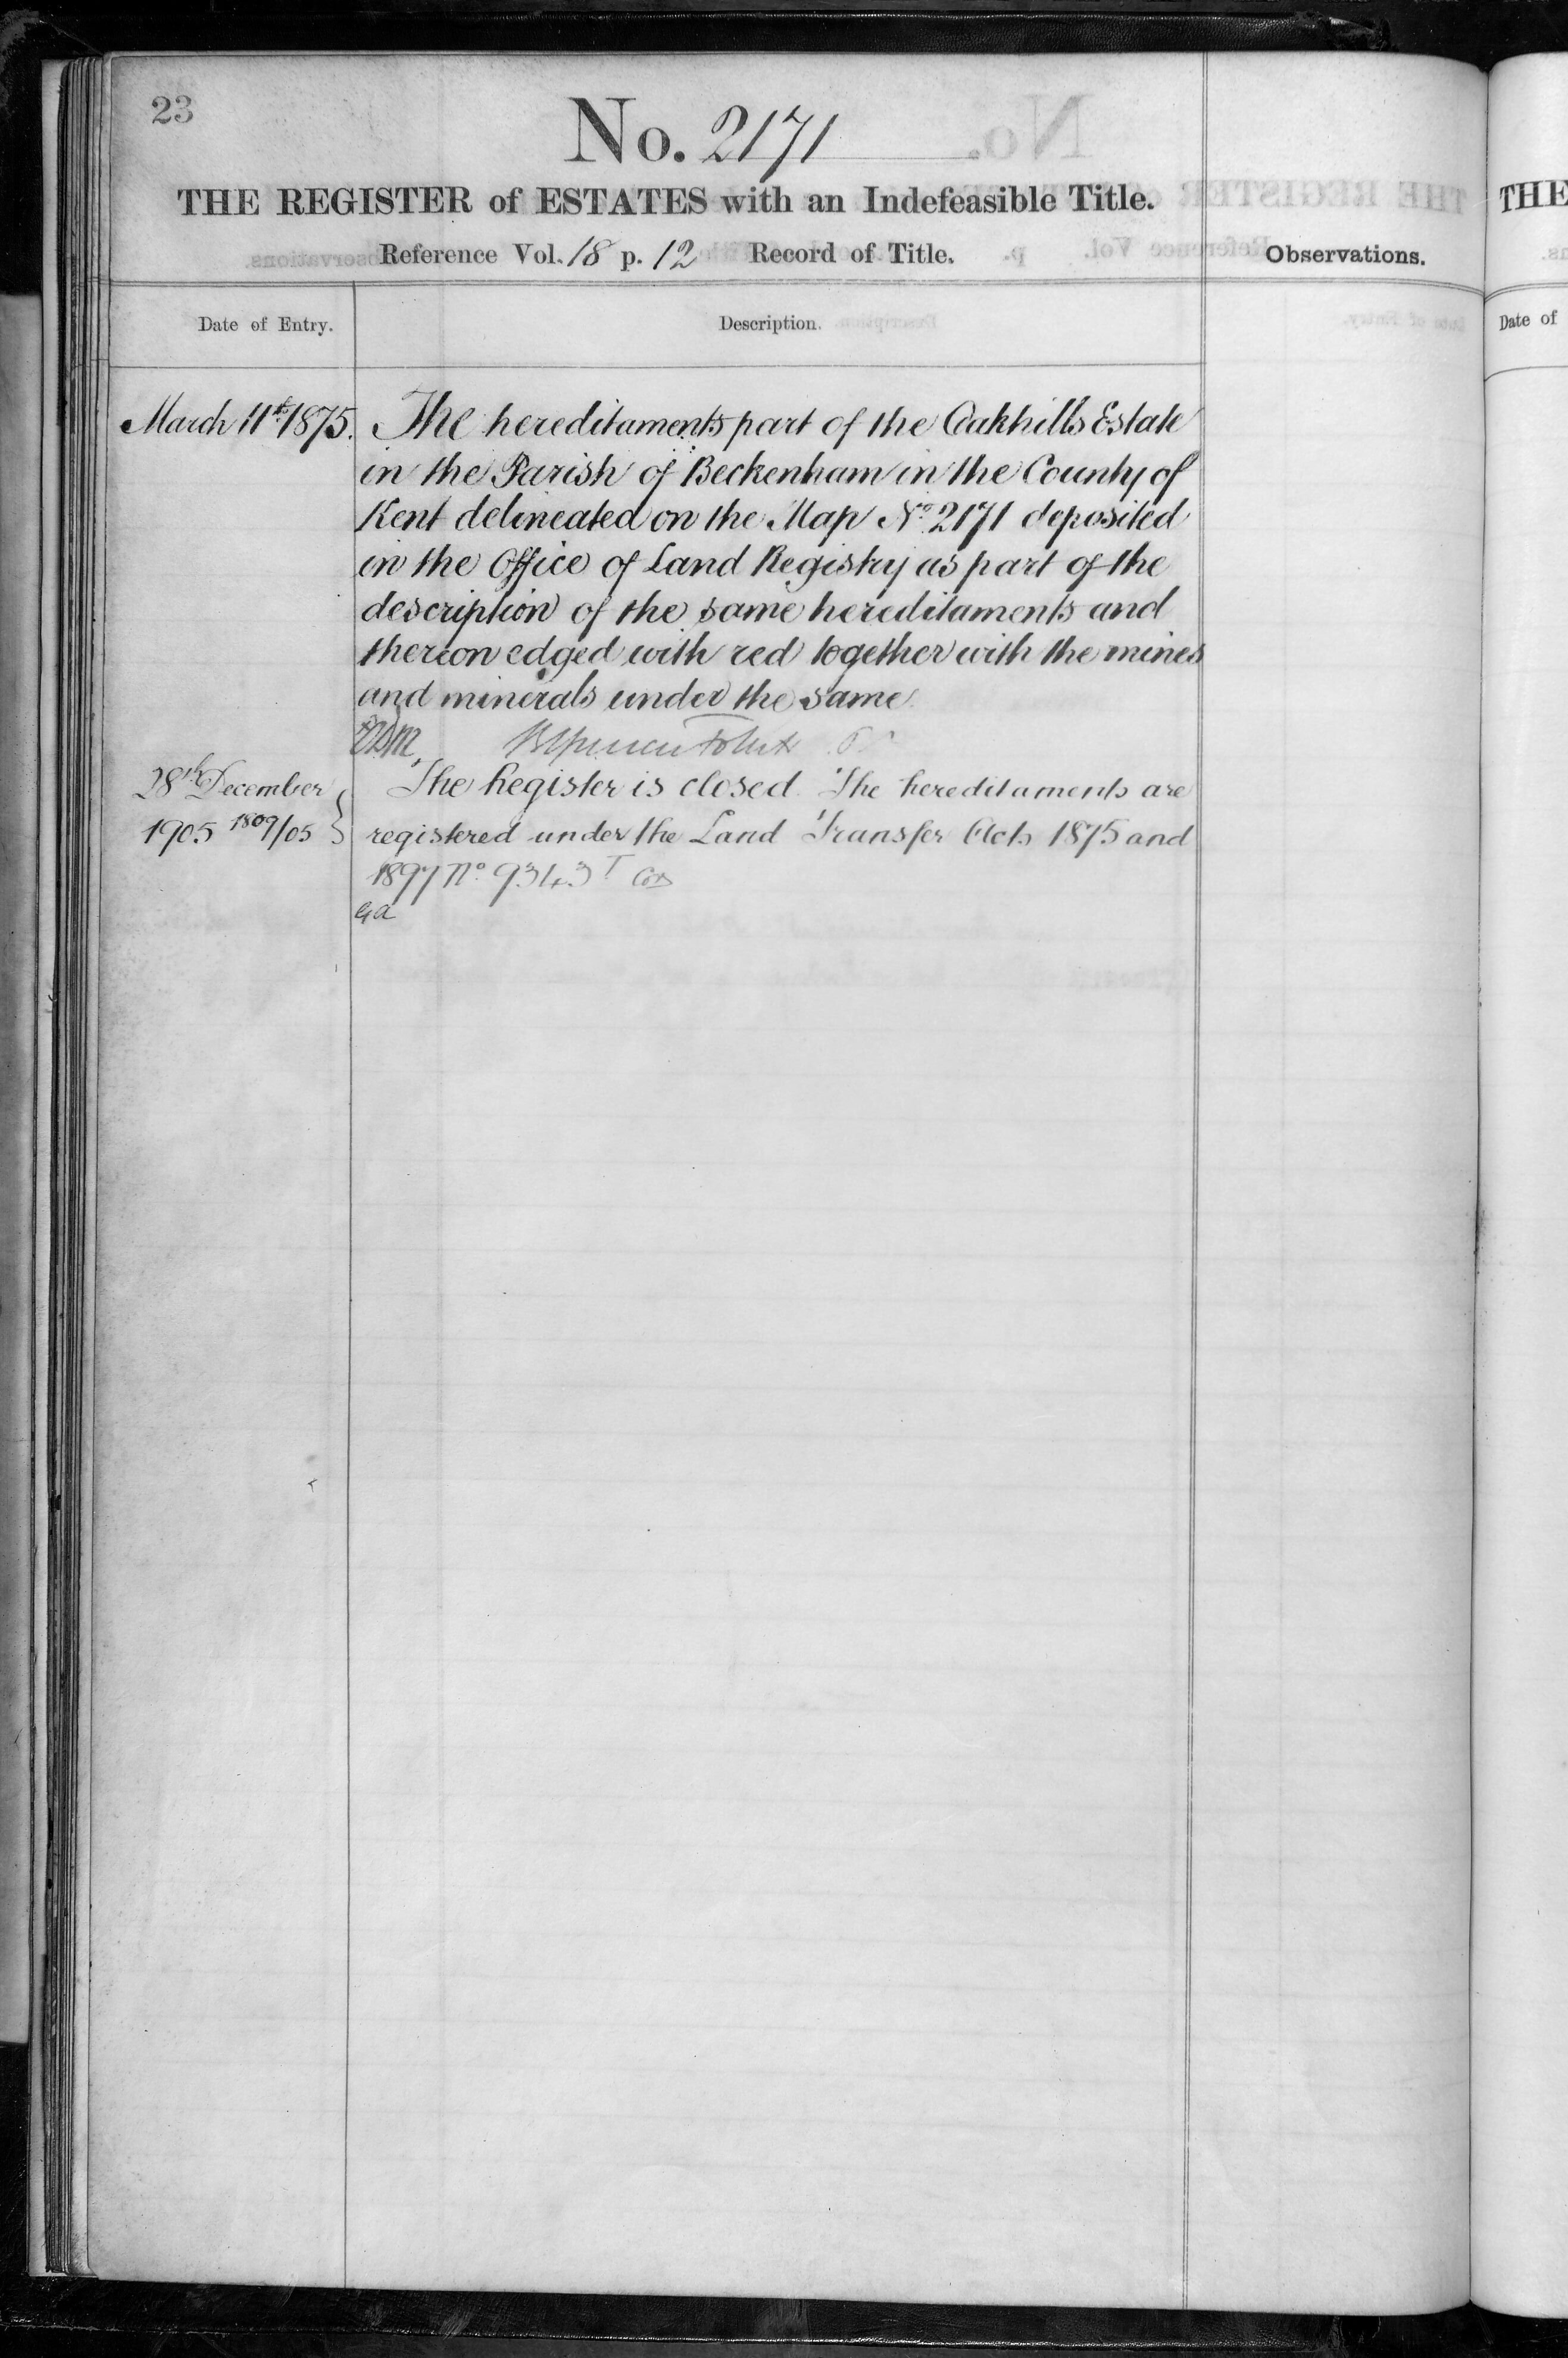 23
No. 2171
THE REGISTER of ESTATES with an Indefeasible Title.
Reference Vol. 18 p. 12 Record of Title.
Observations.
Date of Entry.
Description.
March 11th 1875.
The hereditaments part of the Oakhills Estate
in the Parish of Beckenham in the County of
Kent delineated on the Map No. 2171 deposited
in the Office of Land Registry as part of the
description of the same hereditaments and
thereon edged with red together with the mines
and minerals under the same
28th December
1905 1809/05
The Register is closed. The hereditaments are
registered under the Land Transfer Acts 1875 and
1897 No 9343
THE
Date of